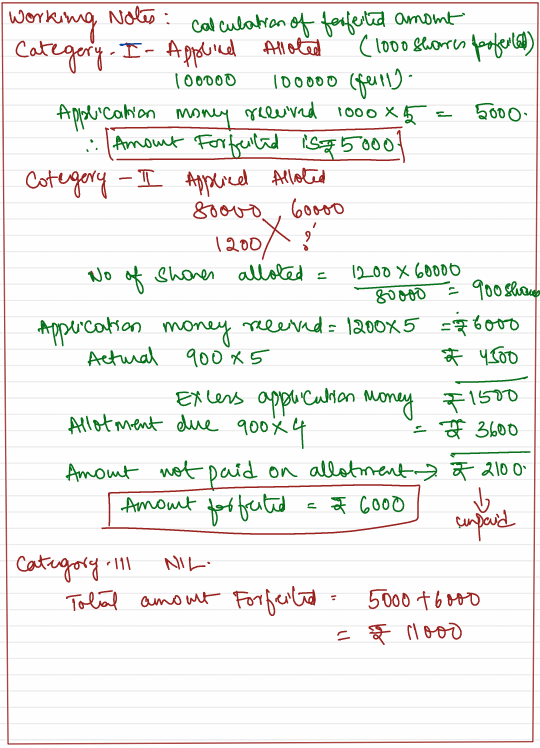 Working Notes: Calculation of forfeited amount
Category-I- Applied Alloted (1000 shares forfeited)
100000 100000 (full).
Application money received 1000 × 5 = 5000.
∴ Amount Forfeited is ₹ 5000.
Category - II Applied Alloted
80000 60000
1200 ?
No of shares alloted = 1200 × 60000 / 80000 = 900 shares
Application money received = 1200×5 = ₹ 6000
Actual 900 × 5 ₹ 4500
Excess application money ₹ 1500
Allotment due 900×4 = ₹ 3600
Amount not paid on allotment → ₹ 2100.
Amount forfeited = ₹ 6000
unpaid
Category-III NIL.
Total amount Forfeited = 5000 + 6000
= ₹ 11000